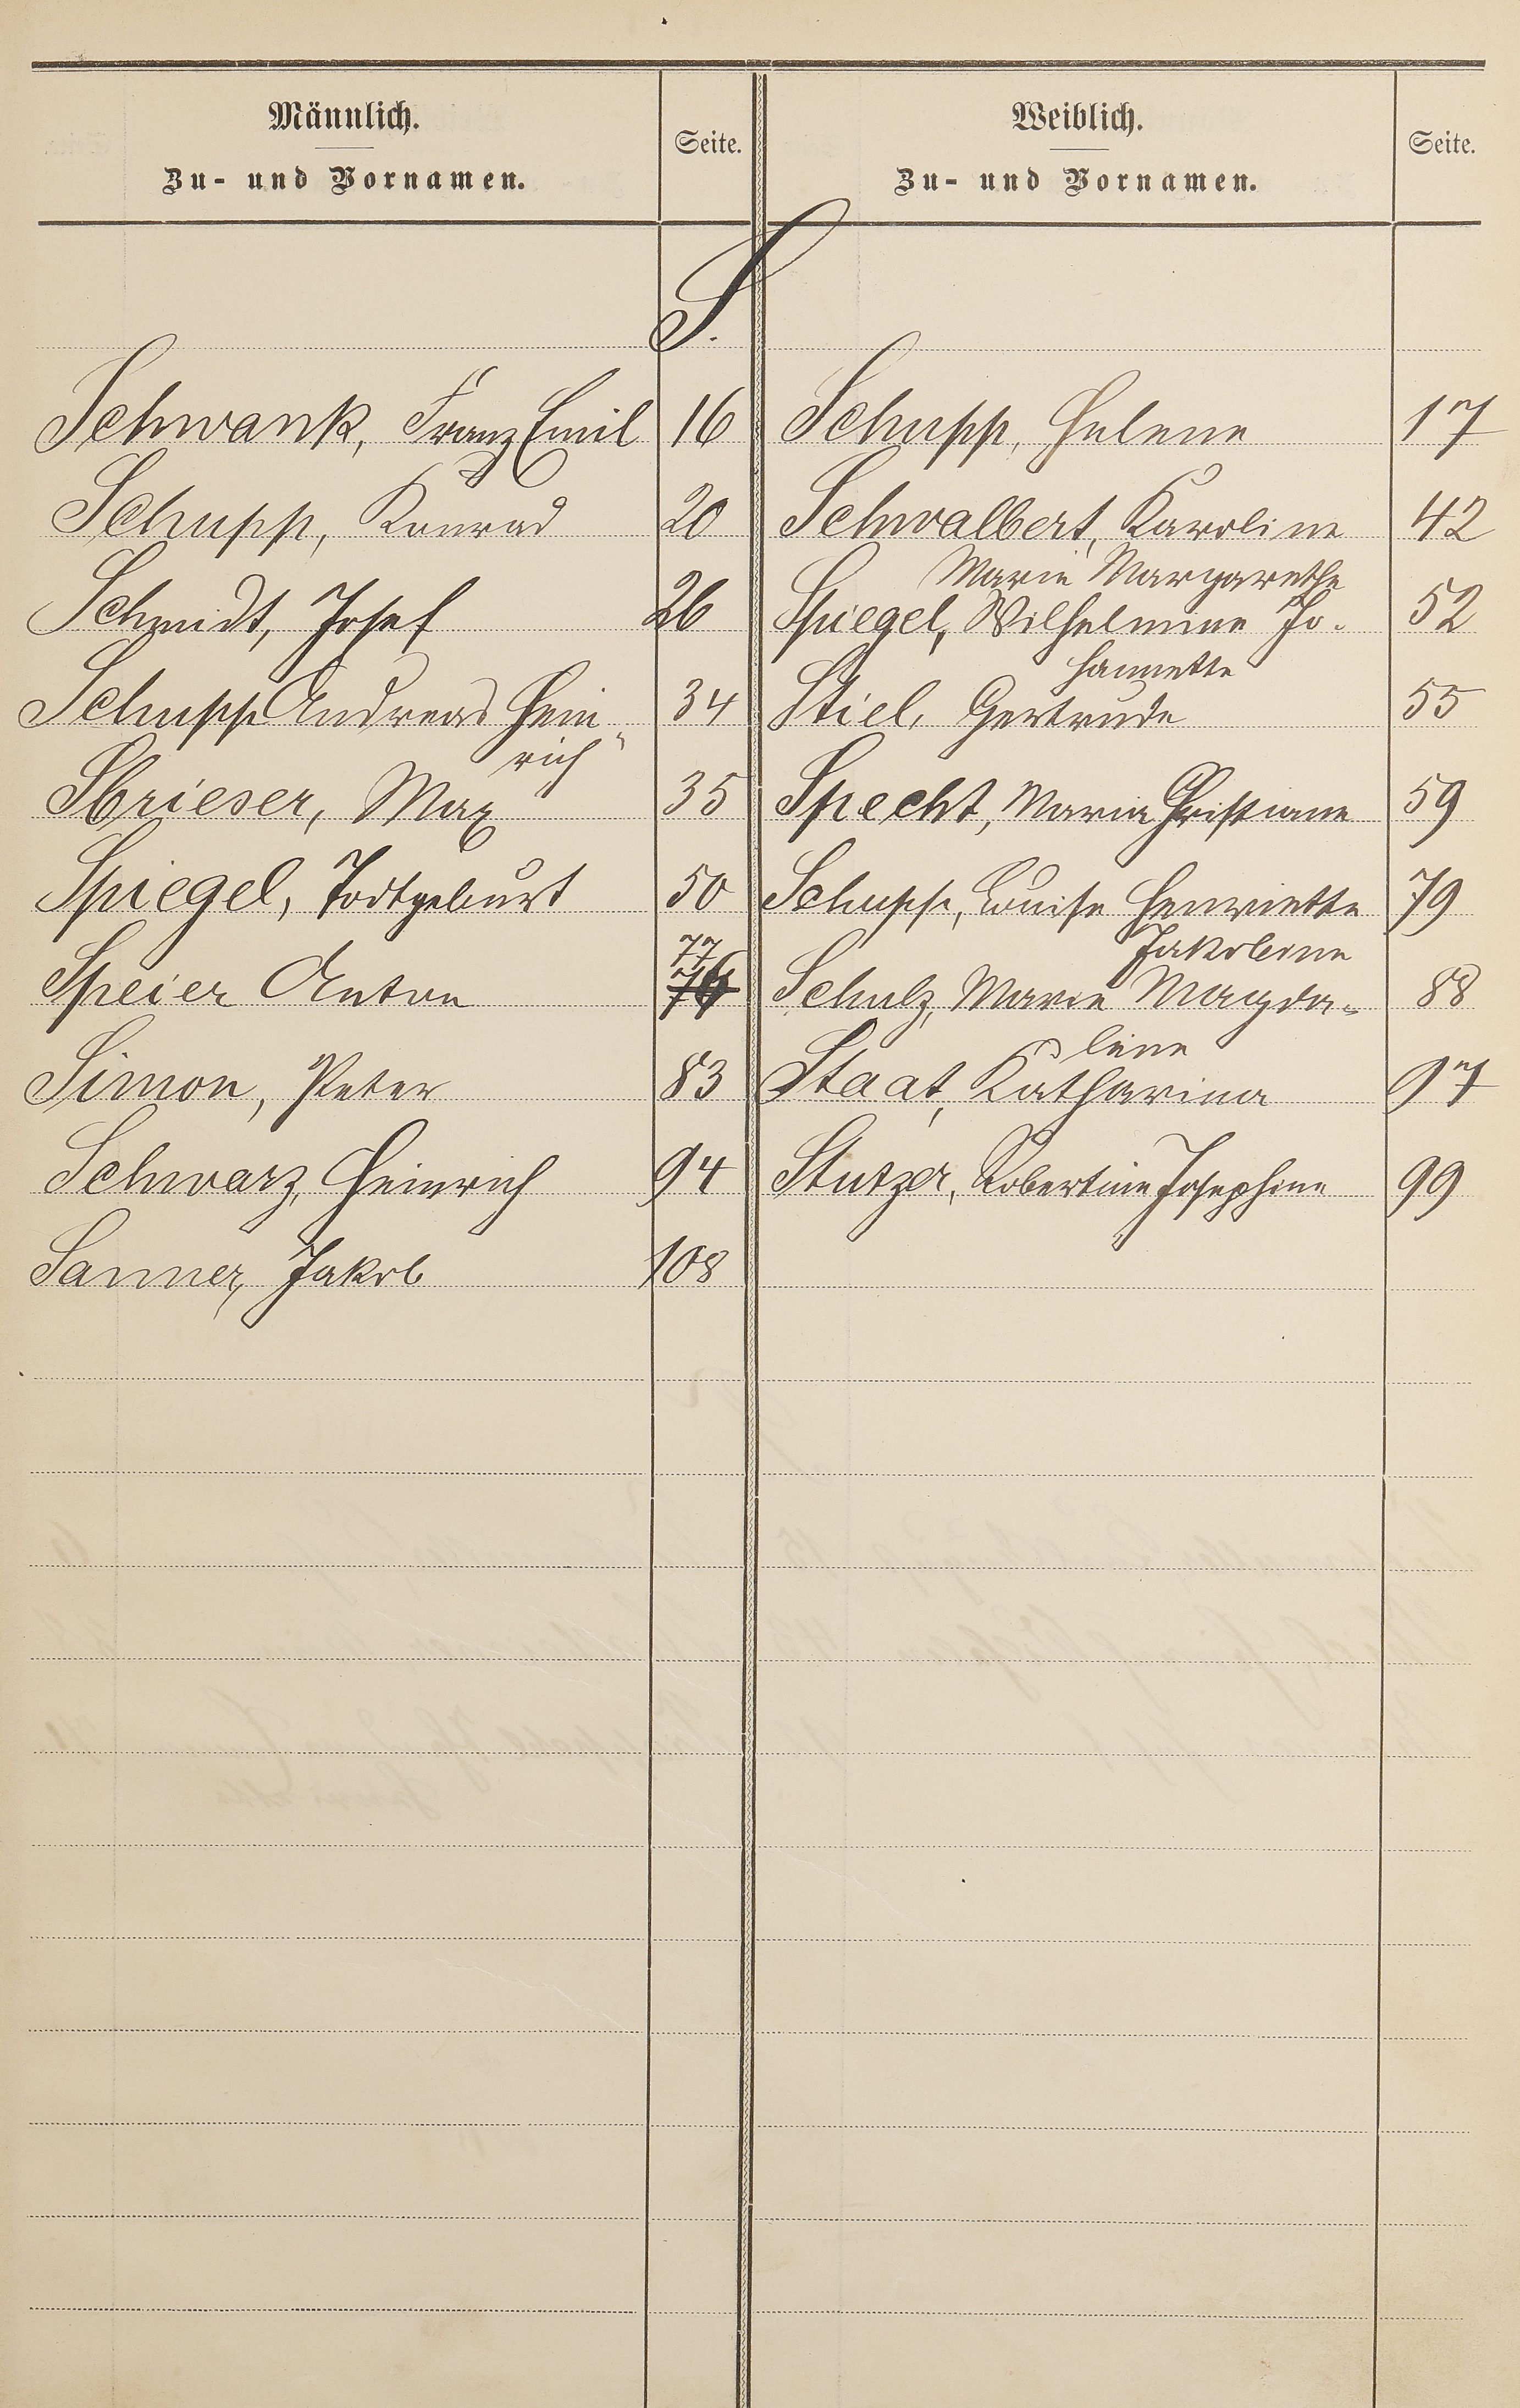 Männlich.
Zu- und Vornamen.
Seite.
Weiblich.
Zu- und Vornamen.
Seite.
S.
Schwank, Franz Emil 16
Schupp, Konrad 20
Schmidt, Josef 26
Schupp Andreas Hein„
rich
Sbrieser, Max 35
34
Spiegel, Todtgeburt 50
77
Speier Anton 76
Simon, Peter 83
Schwarz, Heinrich 94
Sanner, Jakob 108
Schupp, Helene 17
Schwalbert, Karoline 42
Marie Margarethe
Spiegel, Wilhelmine Jo- 52
hannette
Stiel, Gertrude 55
Specht, Maria Christiane 59
Schupp, Louise Henriette 79
Jakobine
Schulz, Marie Magda= 88
lene
Staat, Katharina 97
Stutzer, Robertine Josephine 99